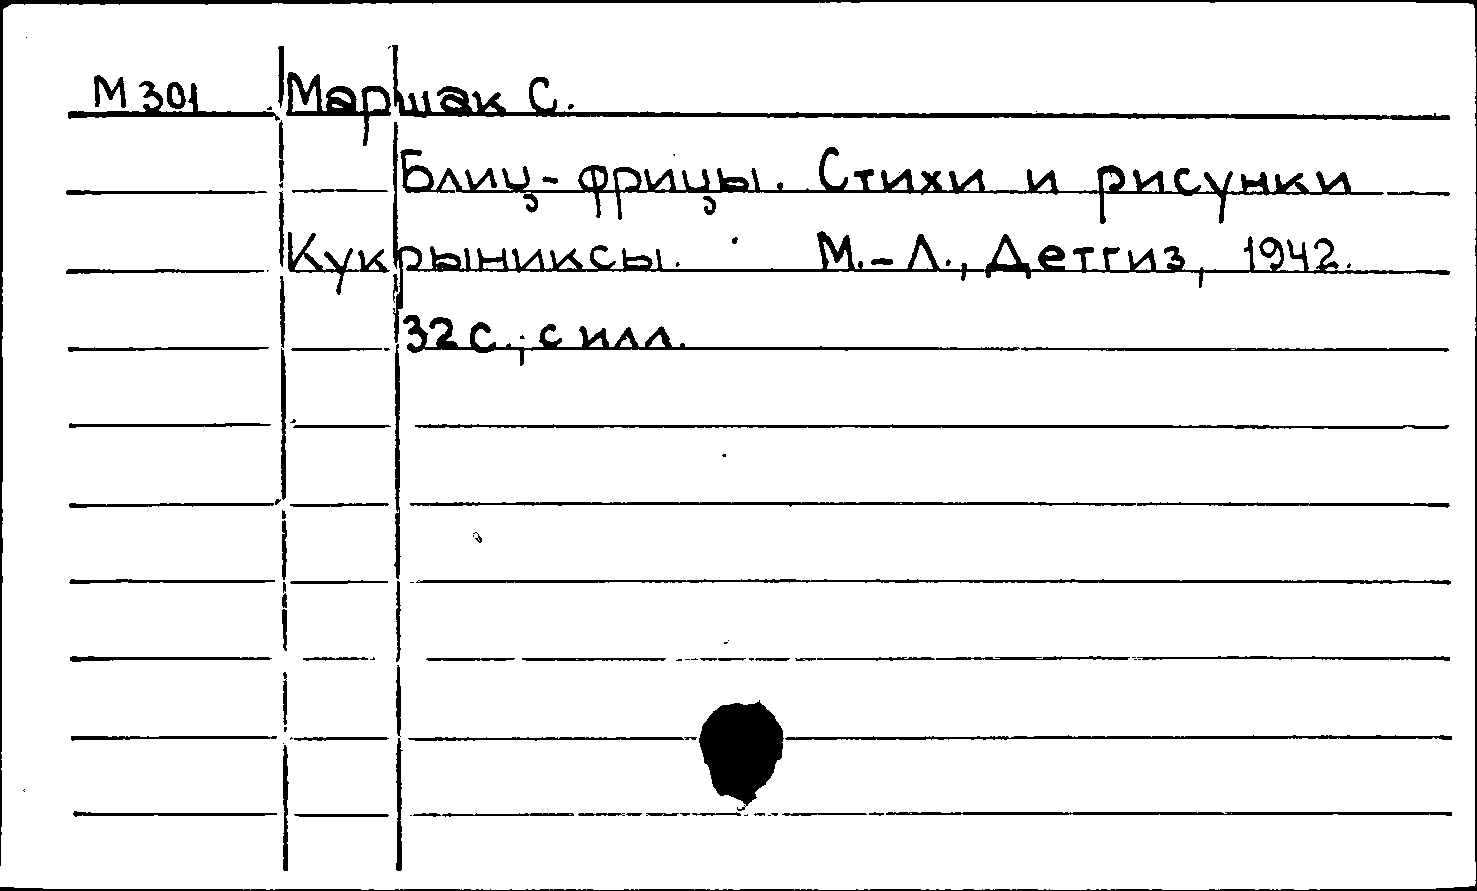 М301 Маршак С.
Блиц-фрицы. Стихи и рисунки
Кукрыниксы. М.-Л., Детгиз, 1942.
32 с., с илл.